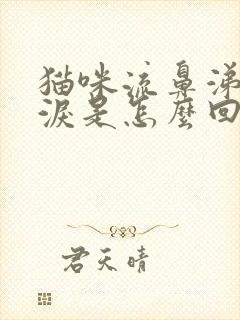 猫咪流鼻涕
淚是怎麼回
君天晴